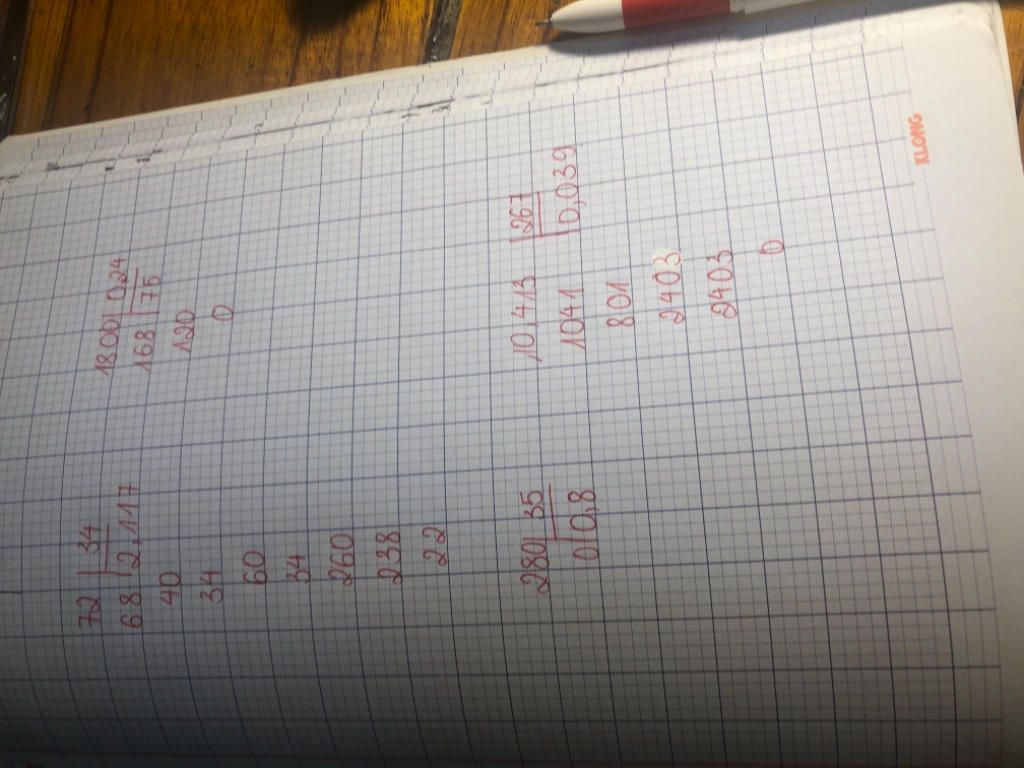 72 | 34
68 | 2,117
40
34
60
34
260
238
22
1800 | 0,24
168 | 75
120
0
280 | 35
0 | 0,8
10,413 | 267
1041 | 0,039
801
2403
2403
0
KLONG